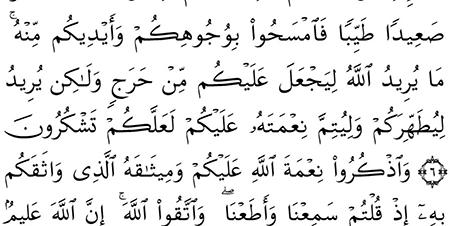 صَعِيدًا طَيِّبًا فَٱمْسَحُوا۟ بِوُجُوهِكُمْ وَأَيْدِيكُم مِّنْهُ ۚ
مَا يُرِيدُ ٱللَّهُ لِيَجْعَلَ عَلَيْكُم مِّنْ حَرَجٍ وَلَـٰكِن يُرِيدُ
لِيُطَهِّرَكُمْ وَلِيُتِمَّ نِعْمَتَهُۥ عَلَيْكُمْ لَعَلَّكُمْ تَشْكُرُونَ
﴿٦﴾ وَٱذْكُرُوا۟ نِعْمَةَ ٱللَّهِ عَلَيْكُمْ وَمِيثَـٰقَهُ ٱلَّذِى وَاثَقَكُم
بِهِۦٓ إِذْ قُلْتُمْ سَمِعْنَا وَأَطَعْنَا ۖ وَٱتَّقُوا۟ ٱللَّهَ ۚ إِنَّ ٱللَّهَ عَلِيمٌۢ